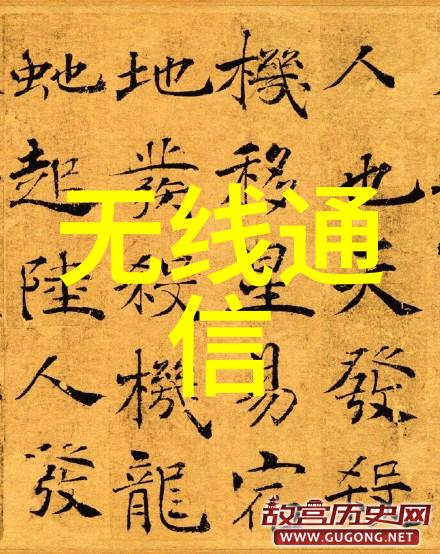 人也天發殺
機移星易宿
地發殺機龍
虵起陸人發
无线通
信
故宫历史网
WWW.GUGONG.NET